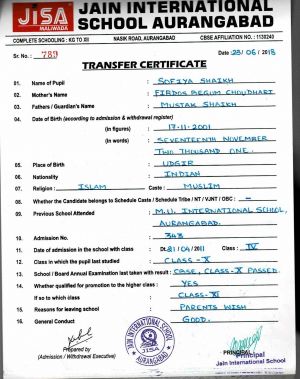 JiSA
MALIWADA
JAIN INTERNATIONAL
SCHOOL AURANGABAD
COMPLETE SCHOOLING : KG TO XII NASIK ROAD, AURANGABAD CBSE AFFILIATION NO. : 1130240
Sr. No. : 789 Date : 23/06/2018
TRANSFER CERTIFICATE
01. Name of Pupil : SOFIYA SHAIKH
02. Mother's Name : FIRDOS BEGUM CHOUDHARI
03. Fathers / Guardian's Name : MUSTAK SHAIKH
04. Date of Birth (according to admission & withdrawal register)
(In figures) : 17-11-2001
(In words) : SEVENTEENTH NOVEMBER
TWO THOUSAND ONE.
05. Place of Birth : UDGIR
06. Nationality : INDIAN
07. Religion : ISLAM Caste : MUSLIM
08. Whether the Candidate belongs to Schedule Caste / Schedule Tribe / NT / VJNT / OBC : -
09. Previous School Attended : M.U. INTERNATIONAL SCHOOL,
AURANGABAD.
10. Admission No. : 343
11. Date of admission in the school with class : Dt. 21/04/2011 Class : IV
12. Class in which the pupil last studied : CLASS-X
13. School / Board Annual Examination last taken with result : CBSE, CLASS-X PASSED.
14. Whether qualified for promotion to the higher class : YES
If so to which class : CLASS-XI
15. Reasons for leaving school : PARENTS WISH
16. General Conduct : GOOD.
Prepared by
(Admission / Withdrawal Executive)
JAIN INTERNATIONAL SCHOOL
JISA
AURANGABAD
PRINCIPAL
Principal
Jain International School
Aurangabad